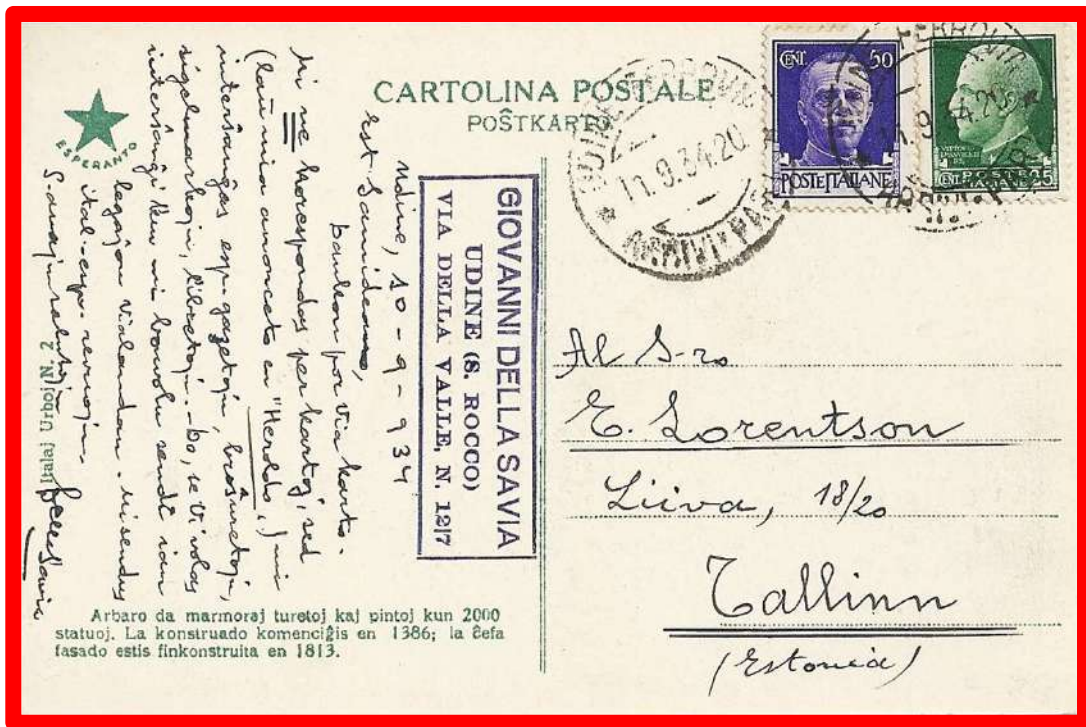 CARTOLINA POSTALE
POŜTKARTO
ESPERANTO
CENT. 50
POSTE ITALIANE
POSTE
ITALIANE
CENT. 25
11.9.34.20
11.9.34.20
GIOVANNI DELLA SAVIA
UDINE (S. ROCCO)
VIA DELLA VALLE, N. 12/7
Udine, 10-9-934
Est. Samideano,
dankon por via karto.
Mi ne korespondas per kartoj, sed
(laŭ mia anonceto en "Heroldo",) mi
interŝanĝas esp. gazetojn, broŝuretojn,
sigelmarkojn, libretojn. - Do, se vi volas
interŝanĝi kun mi bonvolu sendi ian
legaĵon vialandan. Mi sendos
ital.-esp. revuojn.
Samajn salutojn
Italaj Urboj N. 2
Al S-ro
E. Lorentson
Liiva, 18/20
Tallinn
(Estonia)
Arbaro da marmoraj turetoj kaj pintoj kun 2000
statuoj. La konstruado komenciĝis en 1386; la ĉefa
fasado estis finkonstruita en 1813.